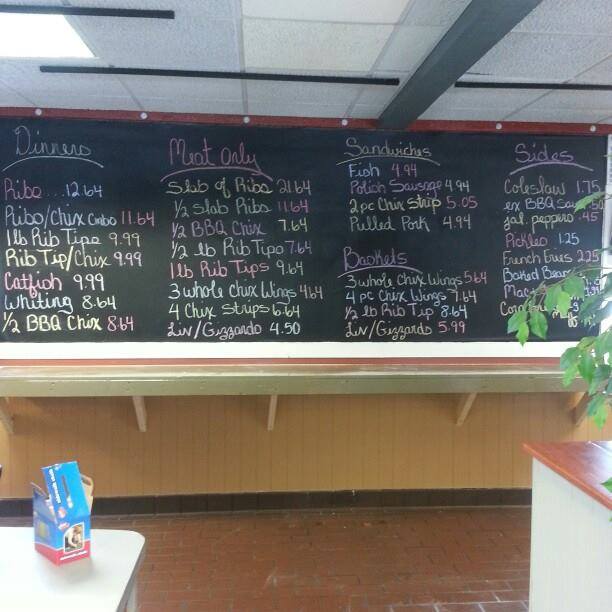 Dinners
Ribs...12.64
Ribs/Chix Combo 11.64
1 lb Rib Tips 9.99
Rib Tip/Chix 9.99
Catfish 9.99
Whiting 8.64
1/2 BBQ Chix 8.64
Meat Only
Slab of Ribs 21.64
1/2 Slab Ribs 11.64
1/2 BBQ Chix 7.64
1/2 lb Rib Tips 7.64
1 lb Rib Tips 9.64
3 whole Chix Wings 4.64
4 Chix Strips 6.64
Liv/Gizzards 4.50
Sandwiches
Fish 4.94
Polish Sausage 4.94
2pc Chix Strip 5.05
Pulled Pork 4.94
Baskets
3 whole Chix Wings 5.64
4 pc Chix Wings 7.64
1/2 lb Rib Tip 8.64
Liv/Gizzards 5.99
Sides
Coleslaw 1.75
ex BBQ .50
jal. peppers .45
Pickles 1.25
French Fries 2.25
Baked